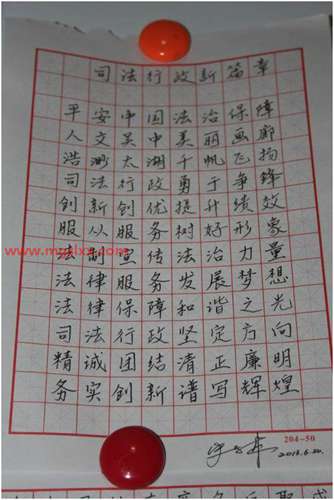 司法行政新篇章
平安中国法治保障
人文吴中美丽画廊
浩渺太湖千帆飞扬
司法行政勇于争锋
创新创优提升绩效
服从服务树好形象
法制宣传法治力量
法律服务发展梦想
法律保障和谐之光
司法行政坚定方向
精诚团结清正廉明
务实创新谱写辉煌
204-50